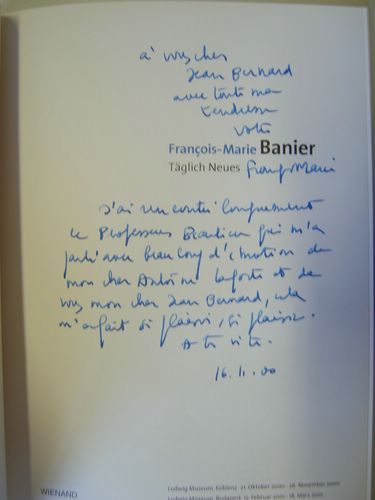 à vous cher
Jean Bernard
avec toute ma
tendresse
votre
François-Marie Banier
Täglich Neues François-Marie
J'ai rencontré longuement
le Professeur Beaulieu qui m'a
parlé avec beaucoup d'émotion de
mon cher Antoine Laporte et de
vous mon cher Jean Bernard, cela
m'a fait si plaisir, si plaisir.
A très vite.
16.11.00
WIENAND
Ludwig Museum, Koblenz 21. Oktober 2000 - 26. November 2000
Ludwig Museum, Budapest 15. Februar 2001 - 18. März 2001